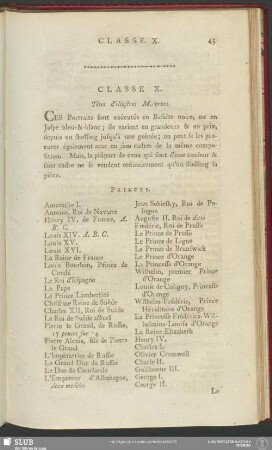 CLASSE X. 45
CLASSE X.
Têtes d'illustres Modernes.
CES Portraits sont exécutés en Basalte noire, ou en
Jaspe bleu-&-blanc; ils varient en grandeurs & en prix,
depuis un shelling jusqu'à une guinée; on peut se les pro-
curer également avec ou sans cadres de la même compo-
sition. Mais, la plûpart de ceux qui sont d'une couleur &
sans cadre ne se vendent ordinairement qu'un shelling la
pièce.
PRINCES.
Amurathe I.
Antoine, Roi de Navarre
Henry IV. de France, A.
B. C.
Louis XIV. A. B. C.
Louis XV.
Louis XVI.
La Reine de France
Louis Bourbon, Prince de
Condé
Le Roi d'Espagne
Le Pape
Le Prince Lambertini
Christine Reine de Suède
Charles XII, Roi de Suède
Le Roi de Suède actuel
Pierre le Grand, de Russie,
17 pouces sur 14
Pierre Alexis, fils de Pierre
le Grand
L'Impératrice de Russie
Le Grand Duc de Russie
Le Duc de Courlande
L'Empereur d'Allemagne,
deux modèles
Jean Sobiesky, Roi de Po-
logne
Auguste II. Roi de dito
Frédéric, Roi de Prusse
Le Prince de Prusse
Le Prince de Ligne
Le Prince de Brunswick
Le Prince d'Orange
La Princesse d'Orange
Wilhelm, premier Prince
d'Orange
Louise de Coligny, Princesse
d'Orange
Wilhelm-Frédéric, Prince
Héréditaire d'Orange
La Princesse Frédérica Wil-
helmina Louisa d'Orange
La Reine Elizabeth
Henry IV.
Charles I.
Olivier Cromwell
Charle II.
Guillaume III.
George I.
George II.
Le
SLUB